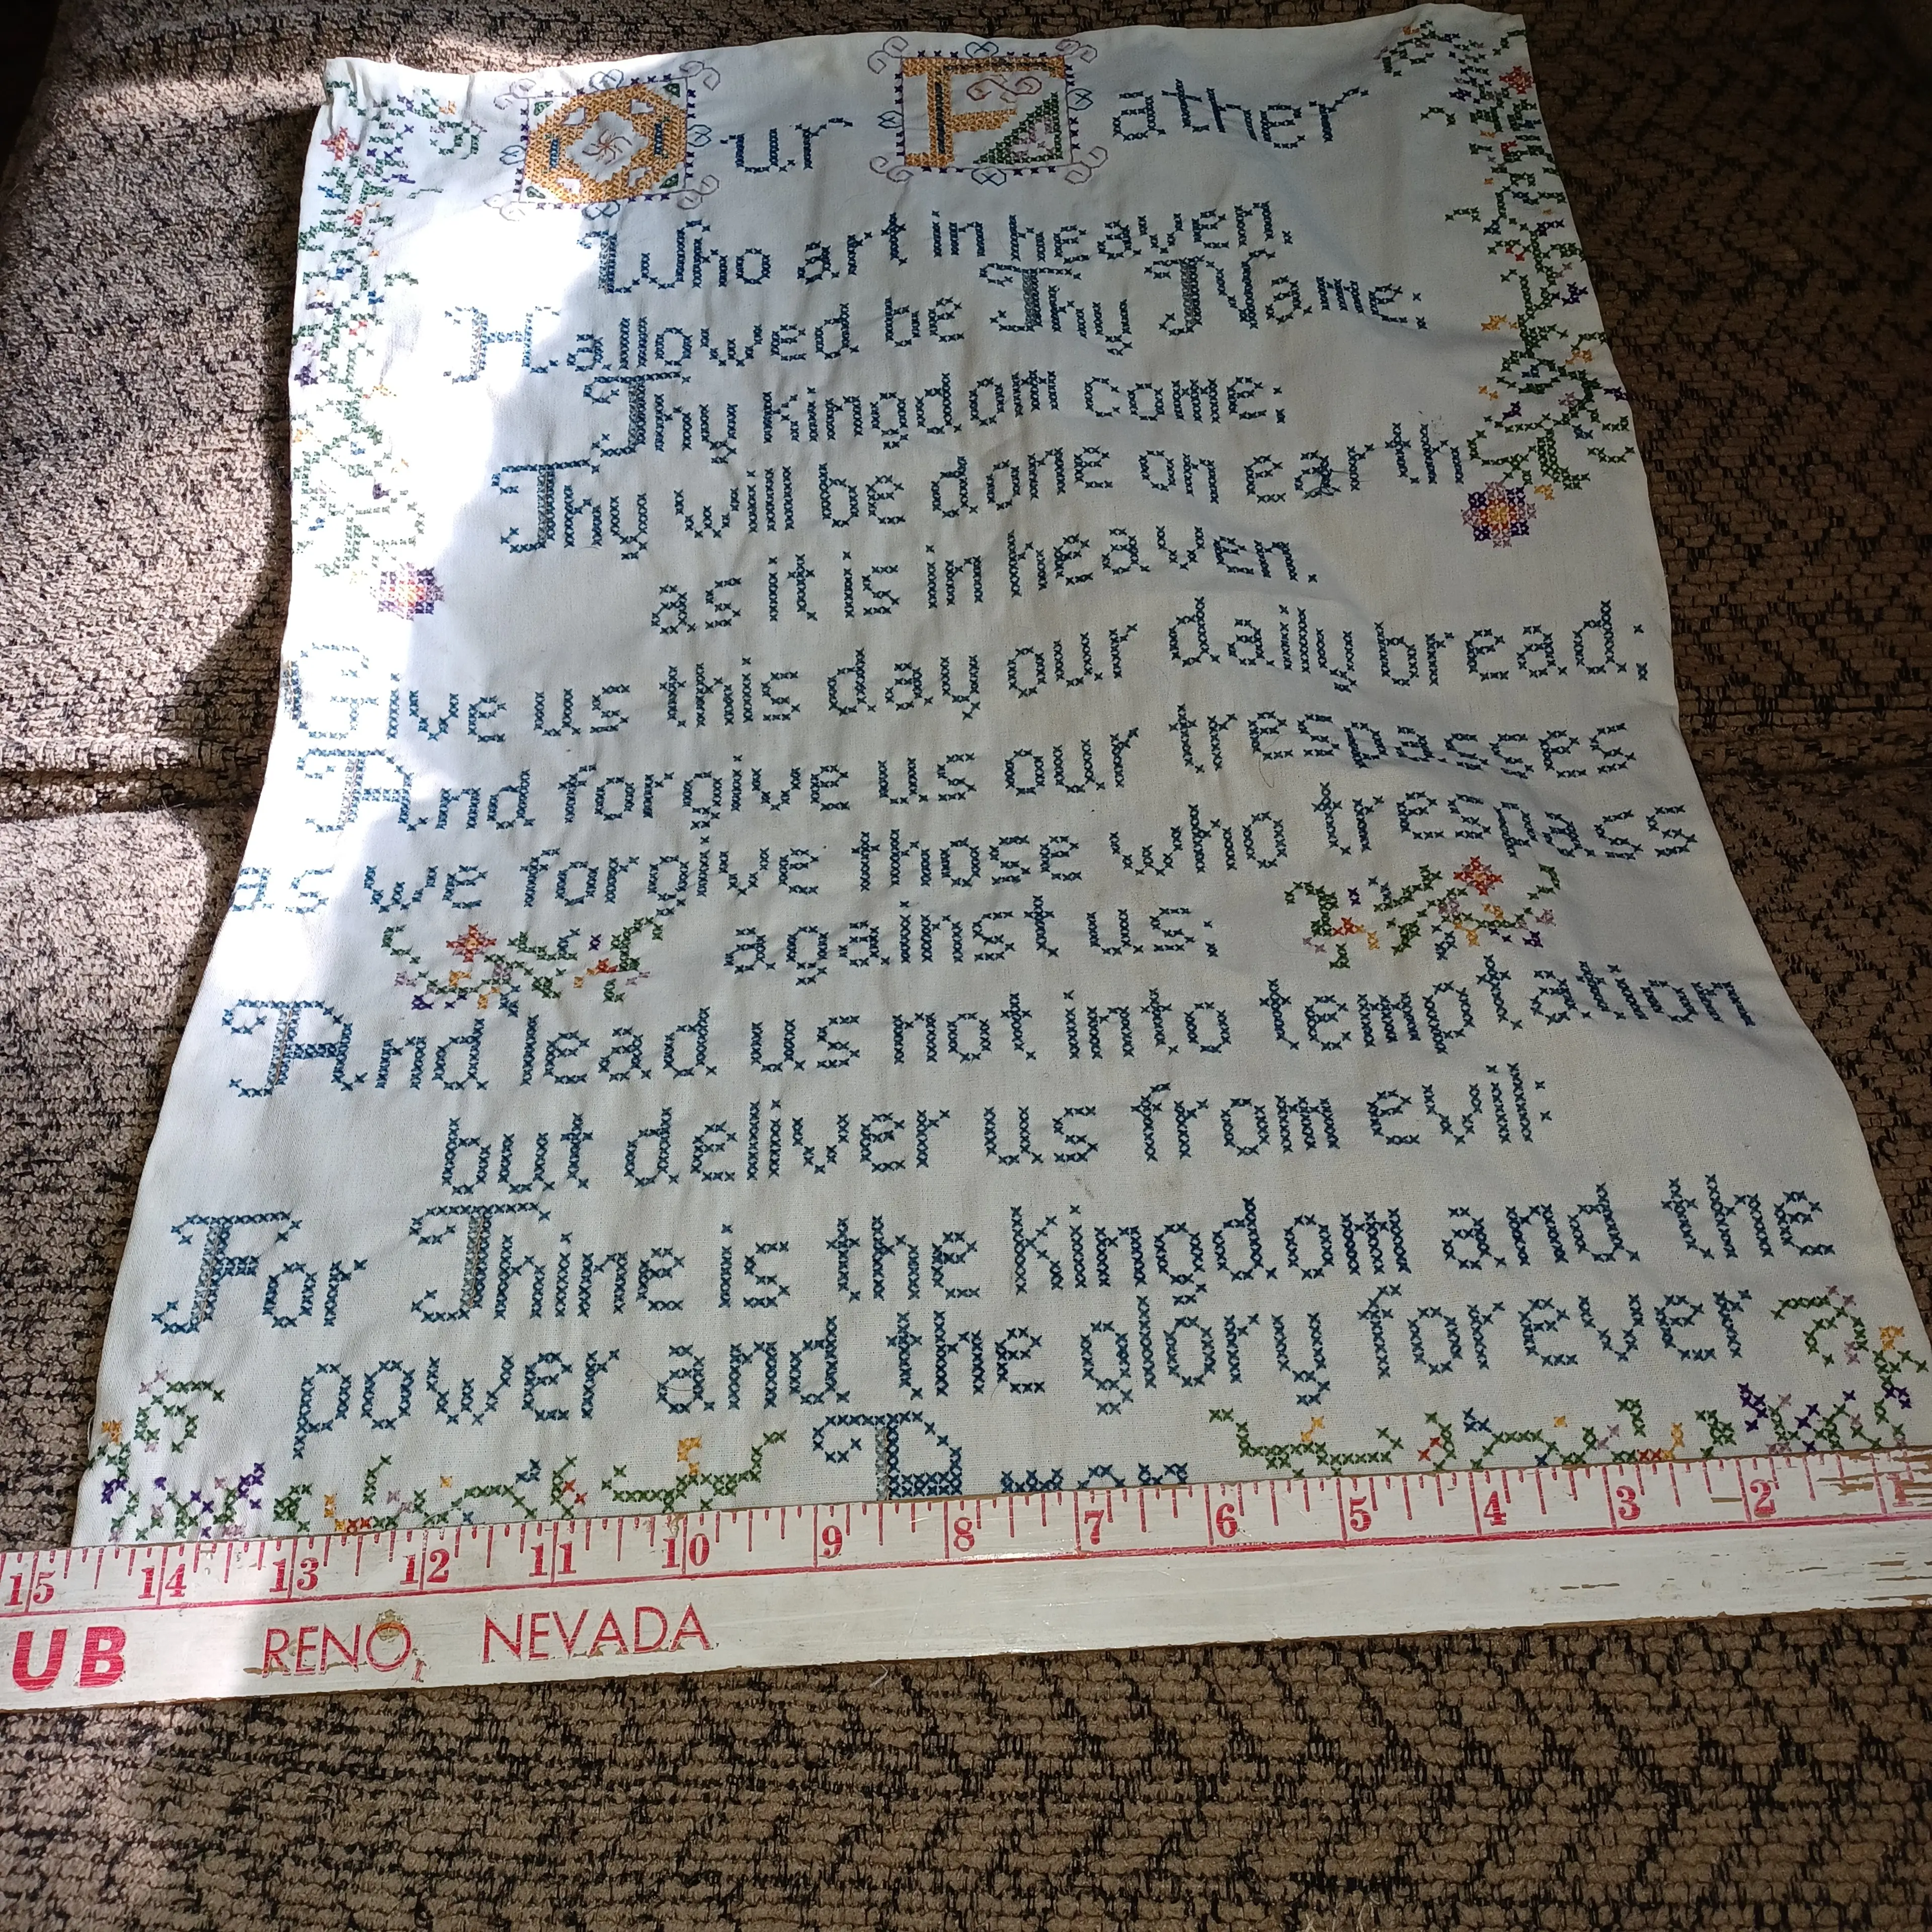 Our Father
Who art in heaven.
Hallowed be Thy Name:
Thy kingdom come:
Thy will be done on earth
as it is in heaven.
Give us this day our daily bread:
And forgive us our trespasses
as we forgive those who trespass
against us:
And lead us not into temptation
but deliver us from evil:
For Thine is the kingdom and the
power and the glory forever
15 14 13 12 11 10 9 8 7 6 5 4 3 2 1
UB RENO, NEVADA